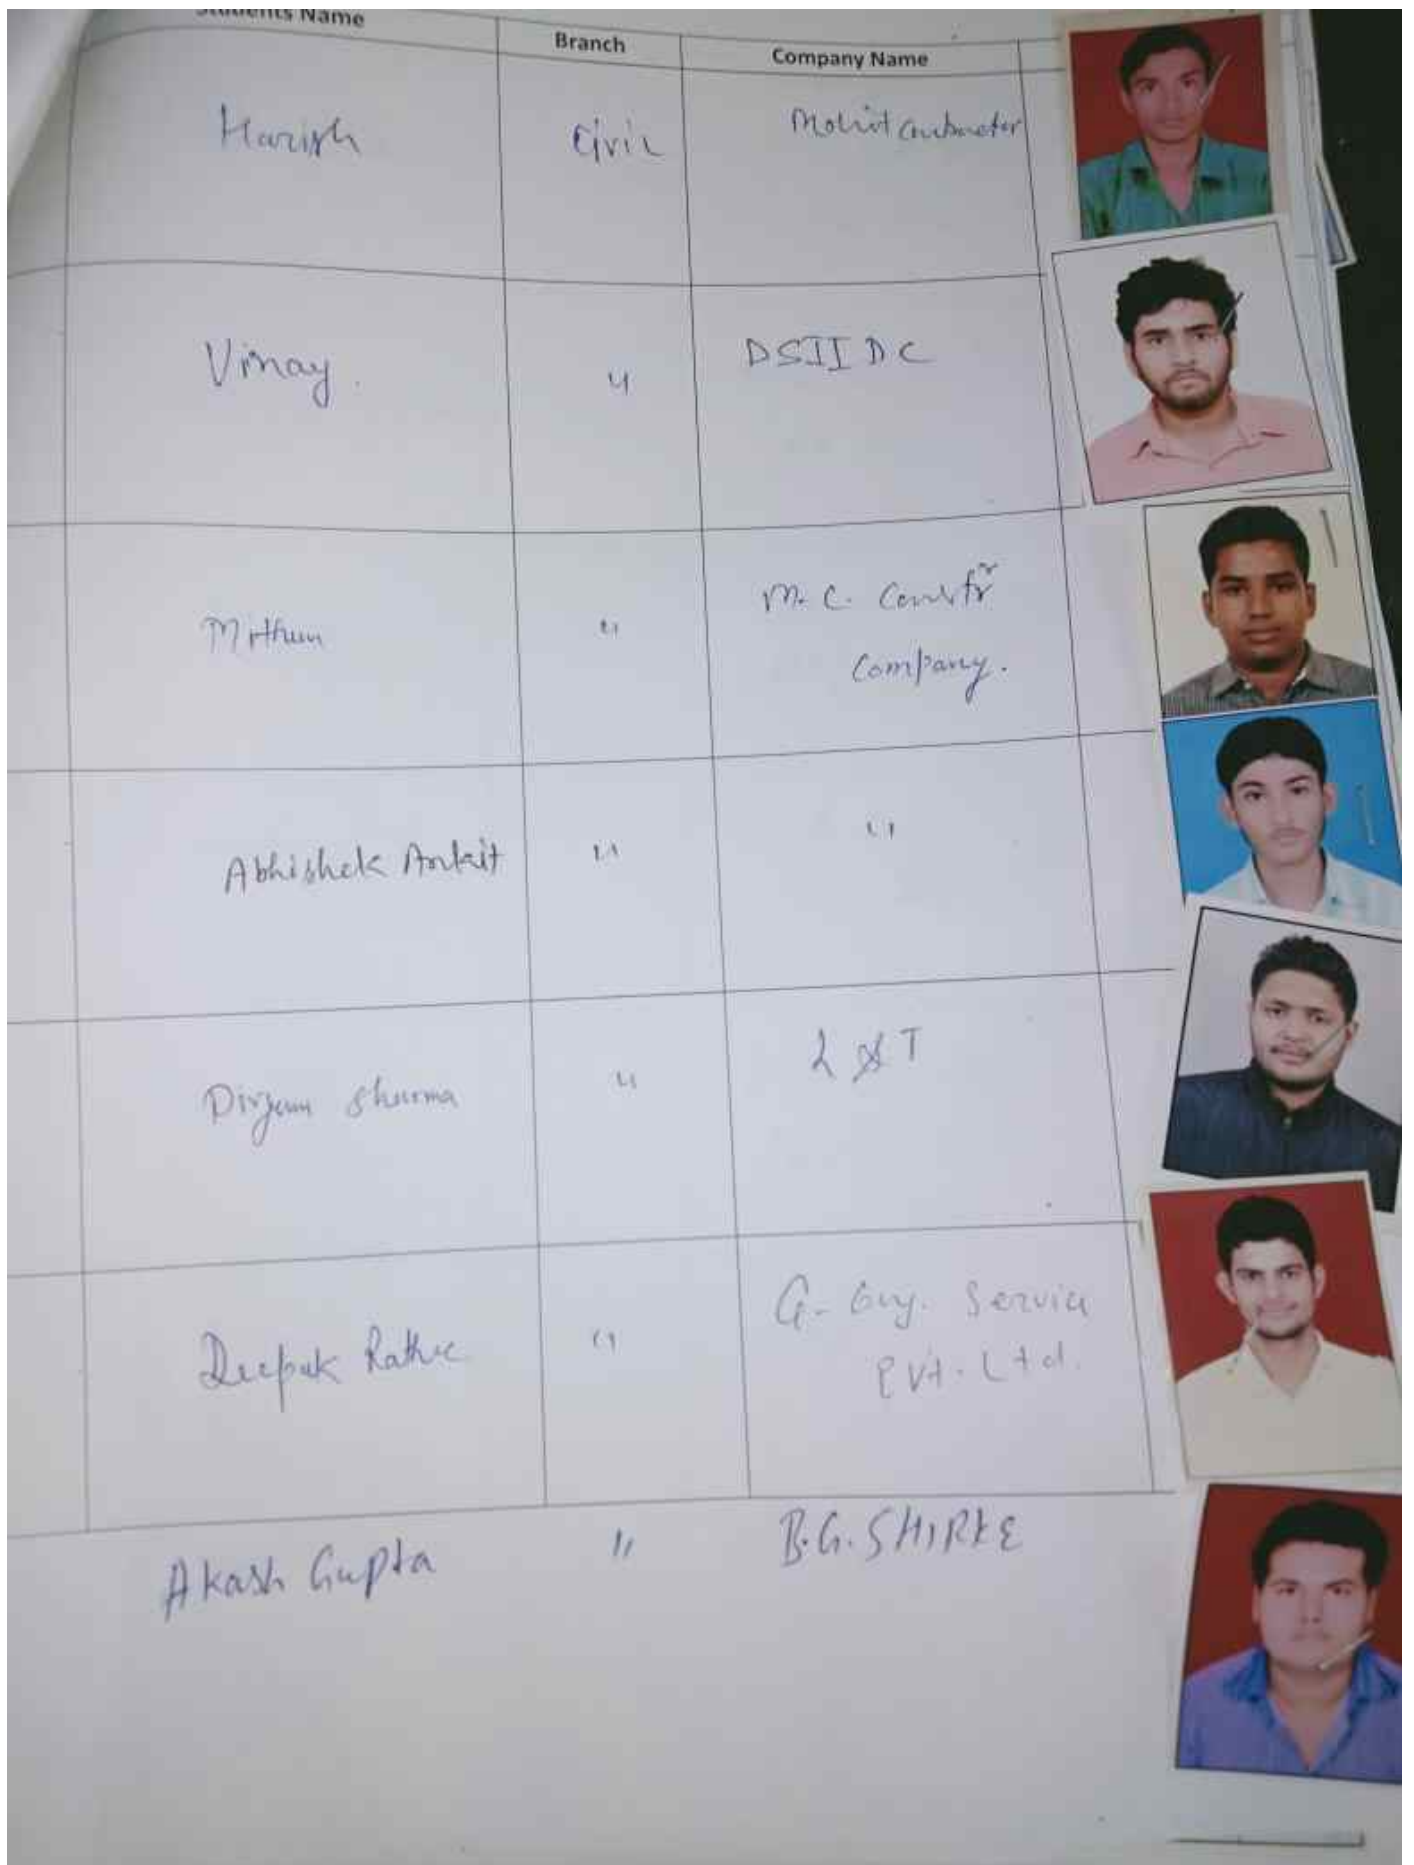 Students Name Branch Company Name
Harish Civil Mohit Contractor
Vinay. " DSIIDC
Mithun " M.C. Constrⁿ
Company.
Abhishek Ankit " "
Sharma " L & T
Deepak " G- Eng. Service
Pvt. Ltd.
Akash Gupta " B.G. SHIRKE